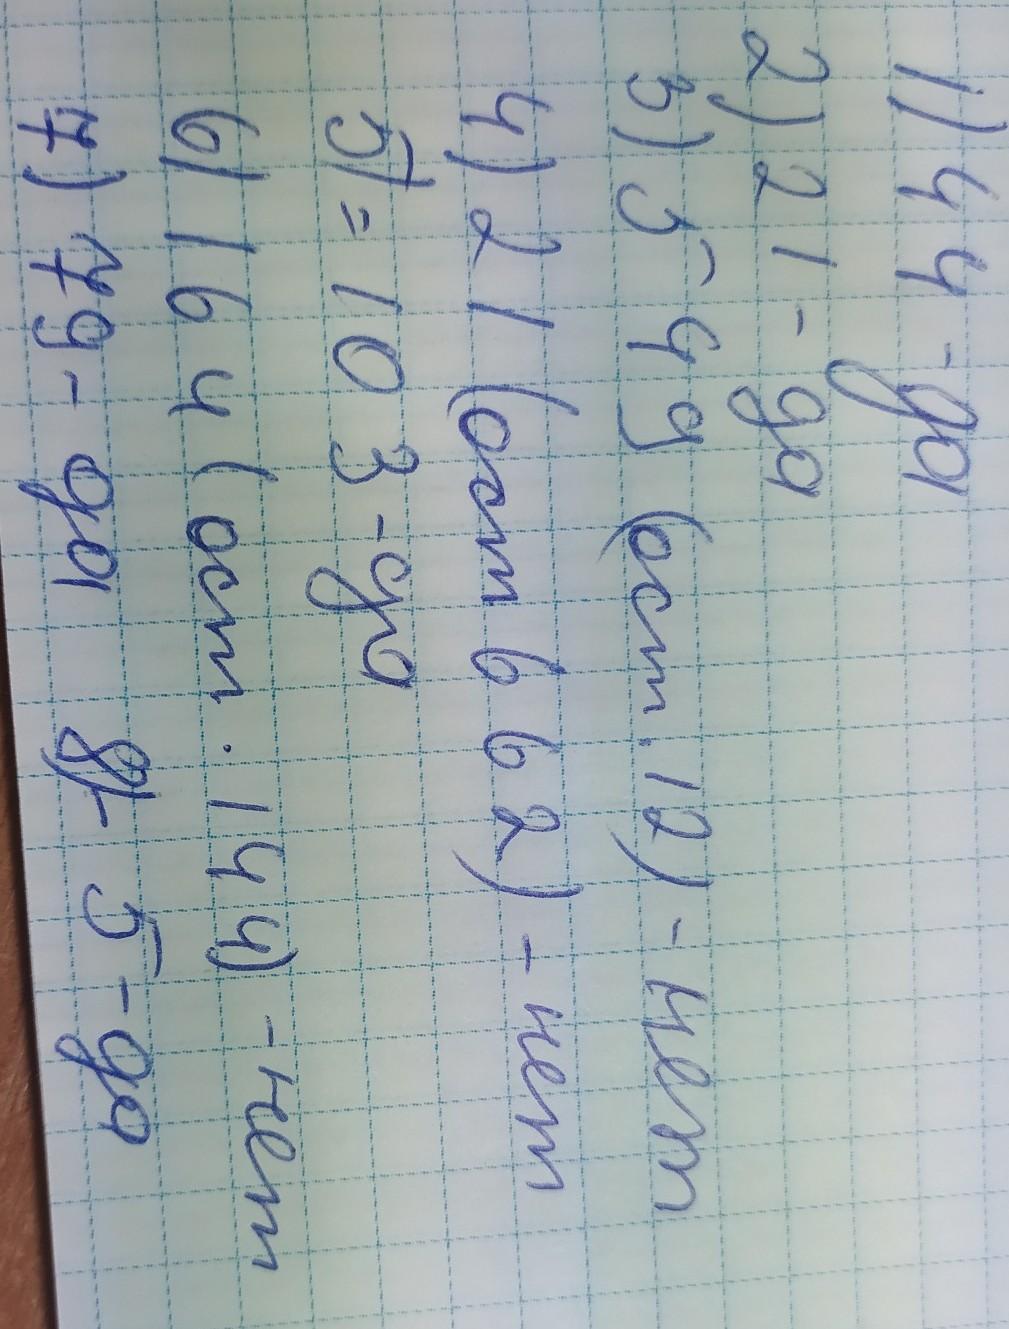 1) 44 - да
2) 21 - да
3) 549 (ост. 12) - нет
4) 21 (ост 662) - нет
5) = 103 - да
6) 164 (ост. 144) - нет
7) 79 - да 8) 5 - да